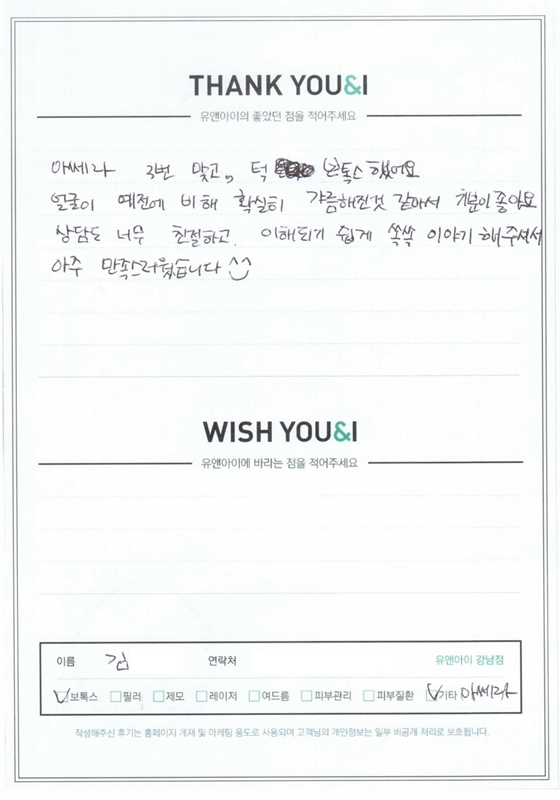 THANK YOU&I
유앤아이의 좋았던 점을 적어주세요
아쎄라 3번 맞고,, 턱 보톡스 했어요
얼굴이 예전에 비해 확실히 갸름해진것 같아서 기분이 좋아요
상담도 너무 친절하고 이해되기 쉽게 쏙쏙 이야기 해주셔서
아주 만족스러웠습니다 ^^
WISH YOU&I
유앤아이에 바라는 점을 적어주세요
이름 김 연락처 유앤아이 강남점
보톡스 필러 제모 레이저 여드름 피부관리 피부질환 기타 아쎄라
작성해주신 후기는 홈페이지 게재 및 마케팅 용도로 사용되며 고객님의 개인정보는 일부 비공개 처리로 보호됩니다.